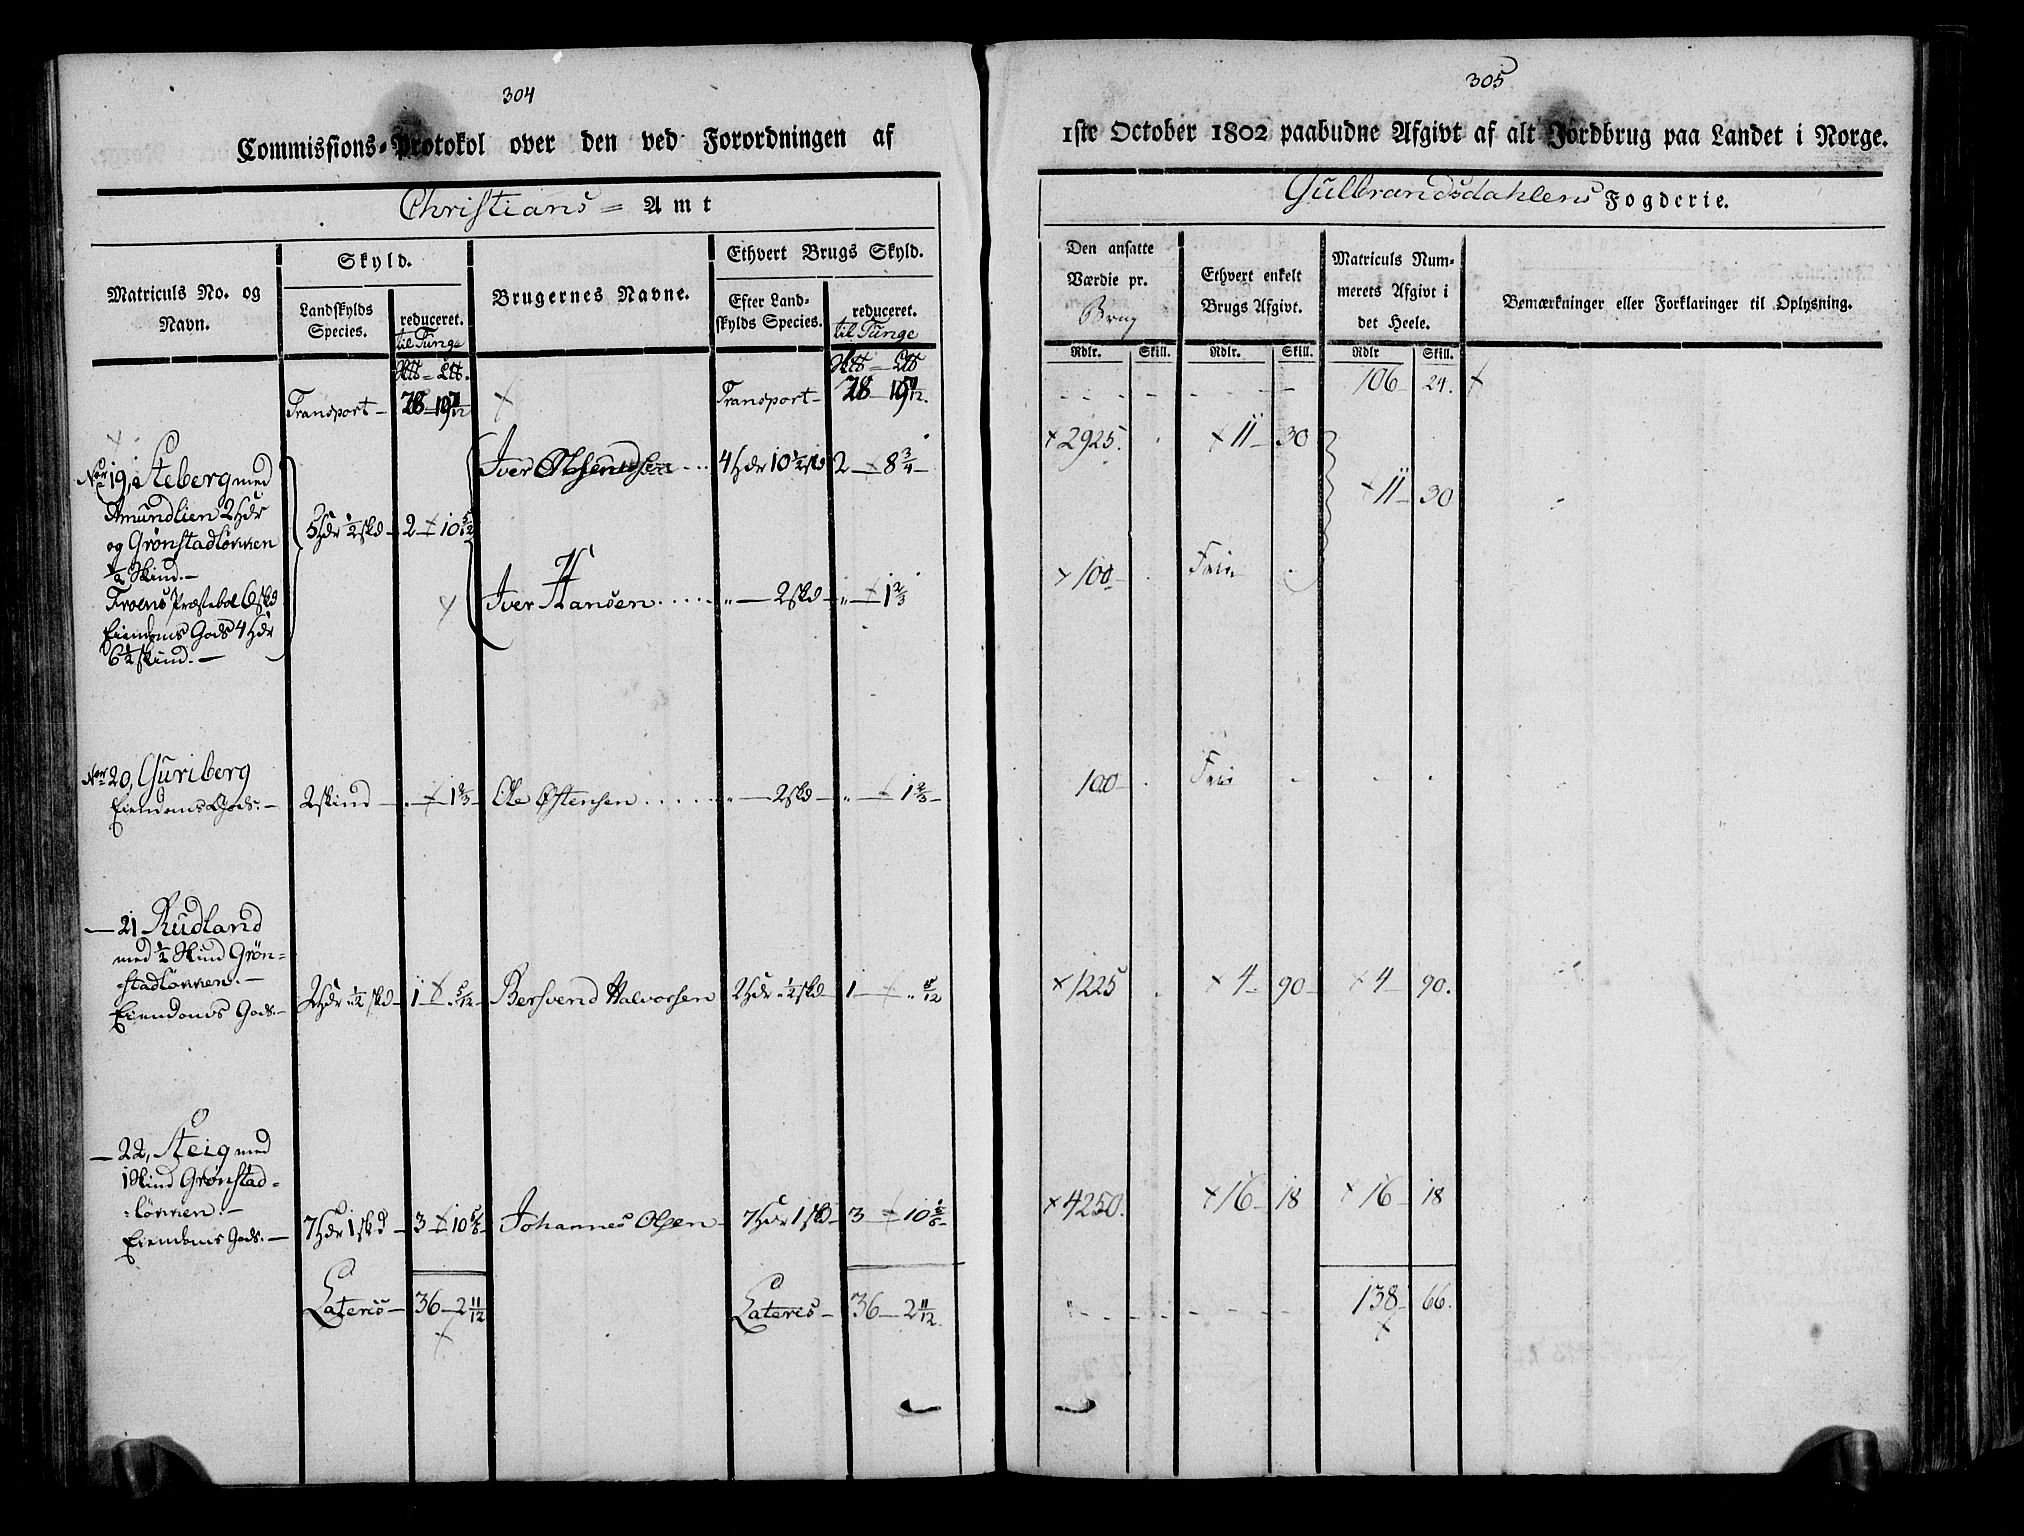 304
Commissions-Protokol over den ved Forordningen af
Christians = Amt
Matriculs No. og Navn.
Skyld.
Landskylds Species.
reduceret.
til Tunge
Brugernes Navne.
Ethvert Brugs Skyld.
Efter Landskylds Species.
reduceret.
til Tunge
Transport — 28 — 19 Transport — 28 — 19
No 19, Steberg med
Amundlien 2 Hdr
og Grønstadlønnen
½ Skind. —
Froens Præstebol 6 skd
Eiendoms Gods 4 Hdr
6½ skind. —
5 Hdr ½ skd — 2 — 10 5/12
Iver 4 Hdr 10½ skd 2 — 8¾ —
Iver Hansen . . . . . „ — 2 skd — „ — 1⅔
No 20, Guriberg
Eiendoms Gods. — 2 skind — . — 1⅔ — Ole Østensen . . . . . „ — 2 skd — „ — 1⅔ —
— 21 Rudland
med ½ Skind Grøn=
=stadlønnen. —
Eiendoms Gods. — 2 Hdr „ ½ skd — 1 — „ 5/12 — Bersvend Halvorsen 2 Hdr „ ½ skd — 1 — „ 5/12
— 22, Steig med
1 Skind Grønstad=
=lønnen. —
Eiendoms Gods. — 7 Hdr 1 skd — 3 — 10 5/6 — Johannes Olsen — 7 Hdr 1 skd — 3 — 10 5/6 —
Lateris — 36 — 2 11/12 Lateris — 36 — 2 11/12
305
1ste October 1802 paabudne Afgivt af alt Jordbrug paa Landet i Norge.
Gulbrandsdahlens Fogderie.
Den ansatte Værdie pr. Brug
Ethvert enkelt Brugs Afgivt.
Matriculs Nummerets Afgivt i det Heele.
Bemærkninger eller Forklaringer til Oplysning.
Rdlr. Skill. Rdlr. Skill. Rdlr Skill.
106 24.
2925. 11 — 30
11 — 30
100 — Frie
100 — Frie
1225 4 — 90 — 4 — 90.
4250. 16 — 18 16 — 18
138 — 66.